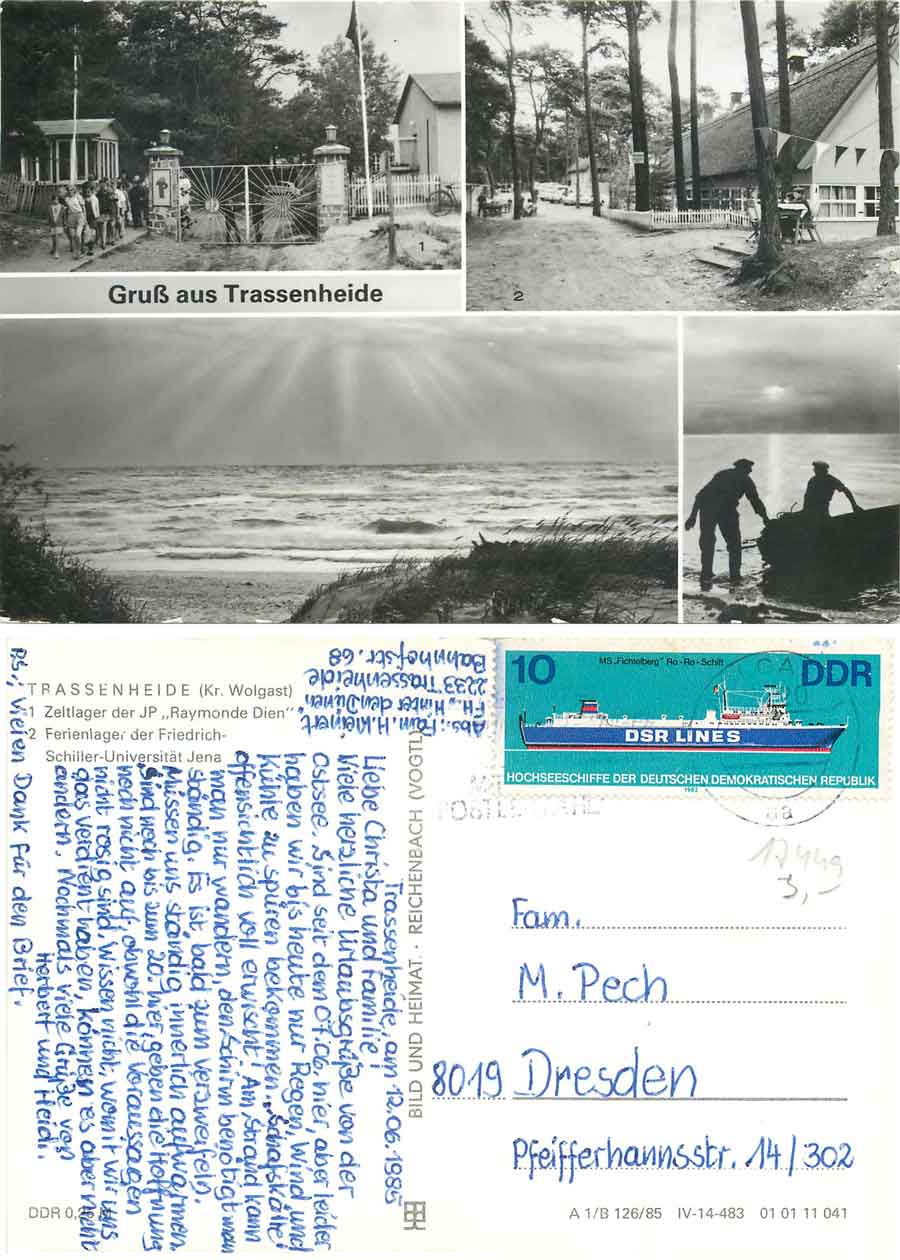 1
2
Gruß aus Trassenheide
TRASSENHEIDE (Kr. Wolgast)
1 Zeltlager der JP „Raymonde Dien"
2 Ferienlager der Friedrich-
Schiller-Universität Jena
Abs.: Fam. H. Kleinert
FH „Hinter den Dünen"
2233 Trassenheide
Bahnhofstr. 68
Trassenheide, am 12.06.1985
Liebe Christa und Familie!
Viele herzliche Urlaubsgrüße von der
Ostsee. Sind seit dem 07.06. hier, aber leider
haben wir bis heute nur Regen, Wind und
Kühle zu spüren bekommen. „Schafskälte"
offensichtlich voll erwischt! Am Strand kann
man nur wandern, den Schirm benötigt man
ständig. Es ist bald zum Verzweifeln.
Müssen uns ständig innerlich aufwärmen.
Sind noch bis zum 20. hier, geben die Hoffnung
noch nicht auf, obwohl die Voraussagen
nicht rosig sind. Wissen nicht, womit wir uns
das verdient haben, können es aber nicht
ändern. Nochmals viele Grüße von
Herbert und Heidi.
PS.: Vielen Dank für den Brief.
BILD UND HEIMAT · REICHENBACH (VOGTL)
10
MS „Fichtelberg" Ro-Ro-Schiff
DDR
DSR LINES
HOCHSEESCHIFFE DER DEUTSCHEN DEMOKRATISCHEN REPUBLIK
1982
aa
17449
3,-
Fam.
M. Pech
8019 Dresden
Pfeifferhannsstr. 14/302
DDR 0,25 M
A 1/B 126/85 IV-14-483 01 01 11 041